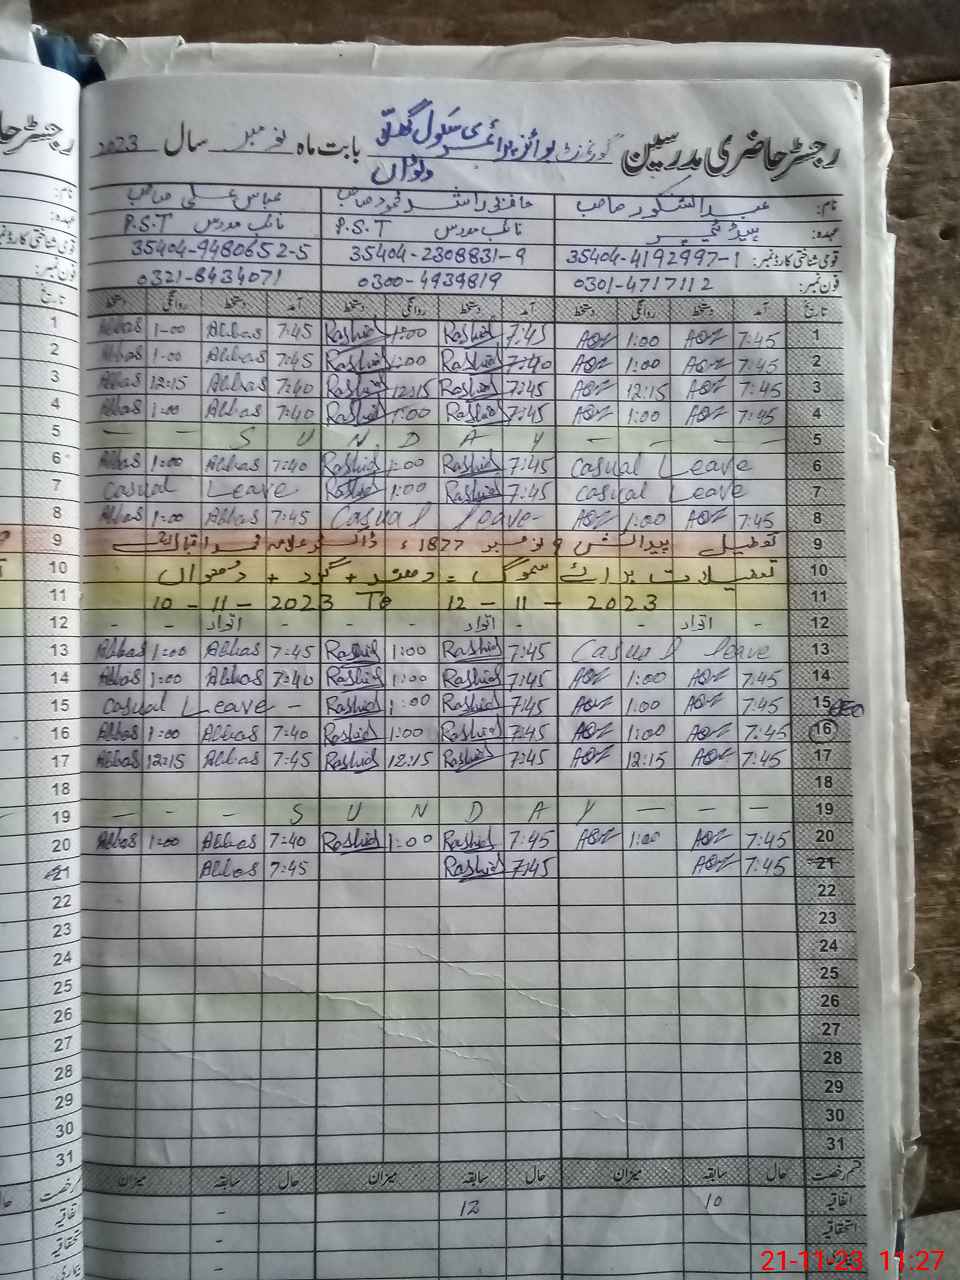 رجسٹر حاضری مدرسین گورنمنٹ بوائز پرائمری سکول گھلہ وٹواں بابت ماہ نومبر سال 2023
نام: عبدالشکور صاحب حافظ راشد محمود صاحب عباس علی صاحب
عہدہ: ہیڈ ٹیچر نائب مدرس P.S.T نائب مدرس P.S.T
قومی شناختی کارڈ نمبر: 35404-4192997-1 35404-2308831-9 35404-9480652-5
فون نمبر: 0301-4717112 0300-4939819 0321-8434071
تاریخ آمد دستخط روانگی دستخط آمد دستخط روانگی دستخط آمد دستخط روانگی دستخط تاریخ
1 Abbas 1:00 Abbas 7:45 Rashid 1:00 Rashid 7:45 1:00 7:45 1
2 Abbas 1:00 Abbas 7:45 Rashid 1:00 Rashid 7:40 1:00 7:45 2
3 Abbas 12:15 Abbas 7:40 Rashid 12:15 Rashid 7:45 12:15 7:45 3
4 Abbas 1:00 Abbas 7:40 Rashid 1:00 Rashid 7:45 1:00 7:45 4
5 - - S U N D A Y - - - - 5
6 Abbas 1:00 Abbas 7:40 Rashid 1:00 Rashid 7:45 Casual Leave 6
7 Casual Leave Rashid 1:00 Rashid 7:45 Casual Leave 7
8 Abbas 1:00 Abbas 7:45 Casual leave- 1:00 7:45 8
9 تعطیل پیدائش 9 نومبر 1877ء ڈاکٹر علامہ محمد اقبال 9
10 تعطیلات برائے سموگ = دھند + گرد + دھواں 10
11 10 - 11 - 2023 To 12 - 11 - 2023 11
12 - - اتوار - - - اتوار - - اتوار - 12
13 Abbas 1:00 Abbas 7:45 Rashid 1:00 Rashid 7:45 Casual leave 13
14 Abbas 1:00 Abbas 7:40 Rashid 1:00 Rashid 7:45 1:00 7:45 14
15 Casual Leave - Rashid 1:00 Rashid 7:45 1:00 7:45 15
16 Abbas 1:00 Abbas 7:40 Rashid 1:00 Rashid 7:45 1:00 7:45 16
17 Abbas 12:15 Abbas 7:45 Rashid 12:15 Rashid 7:45 12:15 7:45 17
18 18
19 - - - S U N D A Y - - - 19
20 Abbas 1:00 Abbas 7:40 Rashid 1:00 Rashid 7:45 1:00 7:45 20
21 Abbas 7:45 Rashid 7:45 7:45 21
22 22
23 23
24 24
25 25
26 26
27 27
28 28
29 29
30 30
31 31
قسم رخصت حال سابقہ میزان حال سابقہ میزان حال سابقہ میزان
اتفاقیہ 10 12 -
استحقاقیہ -
21-11-23 11:27